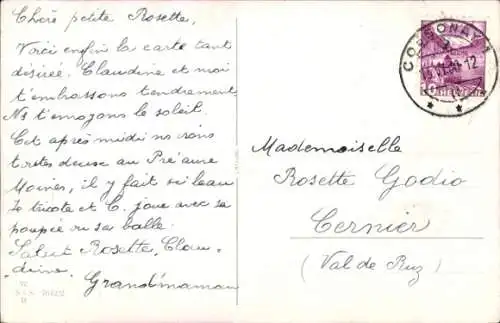 Chère petite Rosette,
Voici enfin la carte tant
désirée. Claudine et moi
t'embrassons tendrement
Ns t'envoyons le soleil.
Cet après midi ns sons
toutes deux au Pré aux
Moines, il y fait si beau
Je tricote et C. joue avec sa
poupée ou sa balle.
Salut Rosette, Clau-
dine.
Grand'maman
CORMON
12
Mademoiselle
Rosette Godio
Cernier
(Val de Ruz)